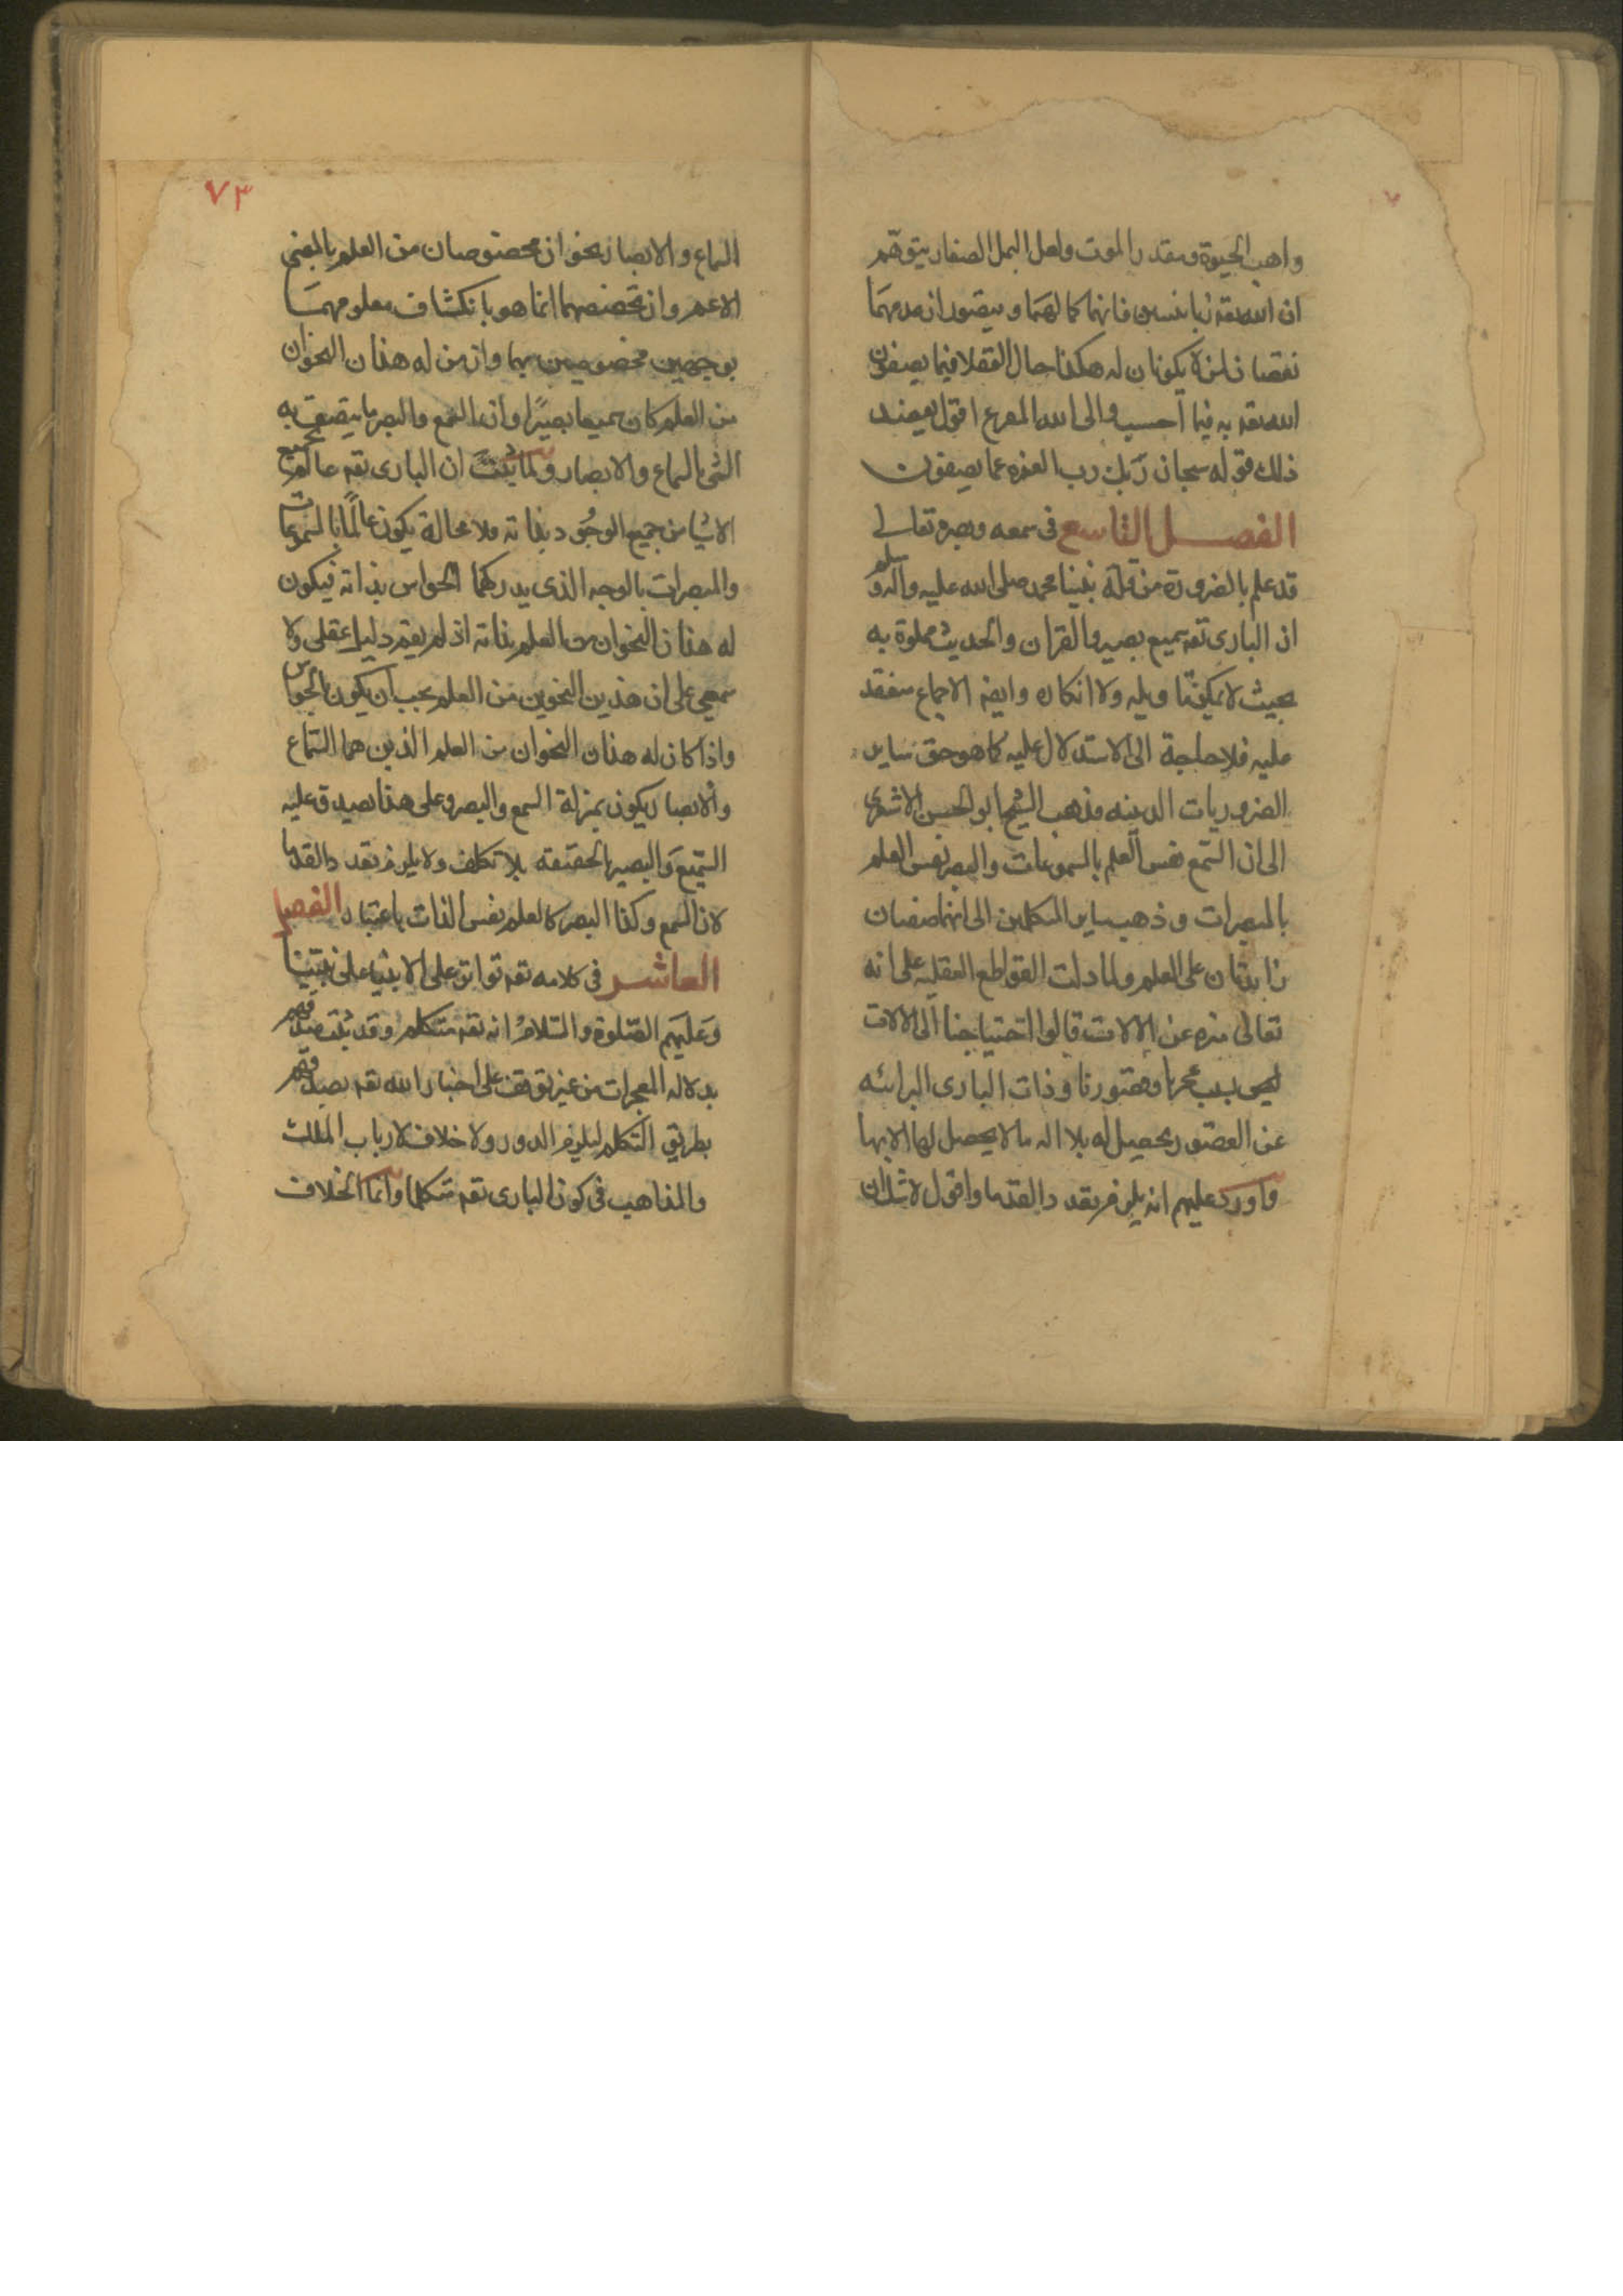 واهب الحيوة ومقدر الموت ولعل النمل الصغار يتوهم
ان الله تعه زبانيتين فانهما كمالهما ويتصور ان عدمهما
نقصان لمن لا يكونان له هكذا حال العقلا فيما يصفون
الله تعه به فيما احسب والى الله المفزع اقول يعضد
ذلك قوله سبحان ربك رب العزه عما يصفون
الفصل التاسع فى سمعه وبصره تعالى
قد علم بالضرورة من نبينا محمد صلى الله عليه وآله وسلم
ان البارى تعه سميع بصير والقران والحديث مملوة به
بحيث لا يمكن تاويله ولا انكاره وايضه الاجماع منعقد
عليه فلا حاجة الى الاستدلال عليه كما هو حق ساير
الضروريات الدينيه فذهب الشيخ ابو الحسن الاشعرى
الى ان السمع نفس العلم بالمسموعات والبصر نفس العلم
بالمبصرات وذهب ساير المتكلمين الى انهما صفتان
زايدتان على العلم ولما دلت القواطع العقليه على انه
تعالى منزه عن الالات قالوا احتياجنا الى الالات
بسبب عجزنا وقصورنا وذات البارى البرائه
عن القصور يحصل له بلا اله ما لا يحصل لها الا بها
واورد عليهم انه يلزم تعدد القدما واقول لا شك ان
٧٣
السماع والابصار نحوان مخصوصان من العلم بالمعنى
الاعم وان تخصصهما انما هو بانكشاف معلومهما
بوجهين مخصوصين بهما وان من له هذان النحوان
من العلم كان سميعا بصيرًا وان السمع والبصر ما يتصف به
الشى بالسماع والابصار ولما ثبت ان البارى تعه عالم بجميع
الاشيا من جميع الوجوه بذاته فلا محالة يكون عالمًا بالمسموعات
والمبصرات بالوجه الذى يدركهما الحواس بذاته فيكون
له هذان النحوان من العلم بذاته اذ لم يقم دليل عقلى ولا
سمعى على ان هذين النحوين من العلم يجب ان يكون بالحواس
واذا كان له هذان النحوان من العلم الذين هما السماع
والابصار يكون بمنزلة السمع والبصر وعلى هذا يصدق عليه
السميع والبصير بالحقيقه بلا تكلف ولا يلزم تعدد القدما
لان السمع وكذا البصر كالعلم نفس الذات باعتبار الفصل
العاشر فى كلامه تعه تواتر على الانبيا على نبينا
وعليهم الصلوة والسلام انه تعه متكلم وقد ثبت صدقهم
بدلاله المعجزات من غير توقف على اخبار الله تعه بصدقهم
بطريق التكلم ليلزم الدور ولا خلاف لارباب الملل
والمذاهب فى كون البارى تعه متكلما وانما الخلاف